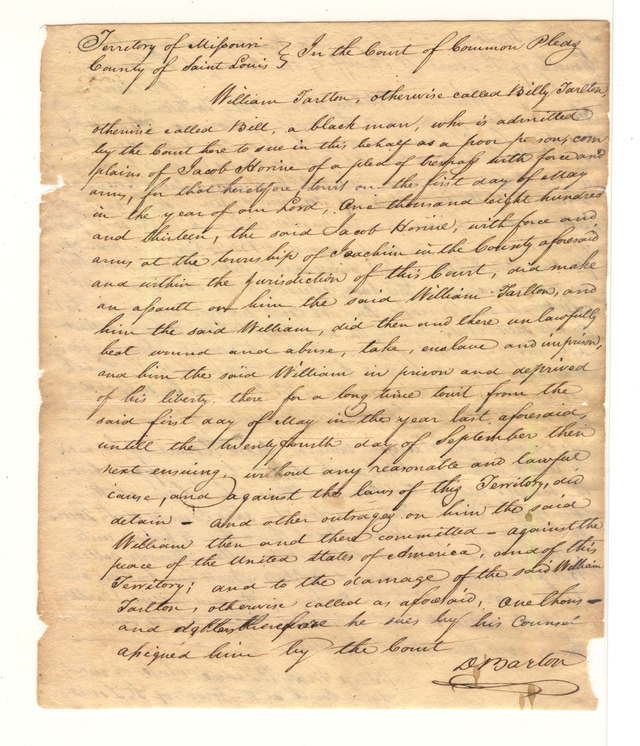 Territory of Missouri } In the Court of Common Pleas
County of Saint Louis
William Tarlton, otherwise called Billy Tarlton,
otherwise called Bill, a black man, who is admitted
by the Court here to sue in this behalf as a poor person, com
plains of Jacob Horine of a plea of trespass with force and
arms, for that heretofore towit on the first day of May
in the year of our Lord, One thousand eight hundred
and thirteen, the said Jacob Horine, with force and
arms at the township of Joachim in the County aforesaid
and within the jurisdiction of this Court, did make
an assault on him the said William Tarlton, and
him the said William, did then and there unlawfully
beat wound and abuse, take, enslave and imprison,
and him the said William in prison and deprived
of his liberty. there for a long time towit from the
said first day of May in the year last aforesaid,
untill the twentyfourth day of September then
next ensuing, without any reasonable and lawful
cause, and against the laws of this Territory, did
detain - and other outrages on him the said
William then and there committed - against the
peace of the United States of America, and of this
Territory; and to the damage of the said William
Tarlton, otherwise called as aforesaid, One thous-
and dollars therefore he sues by his Counsel
assigned him by the Court
D Barton